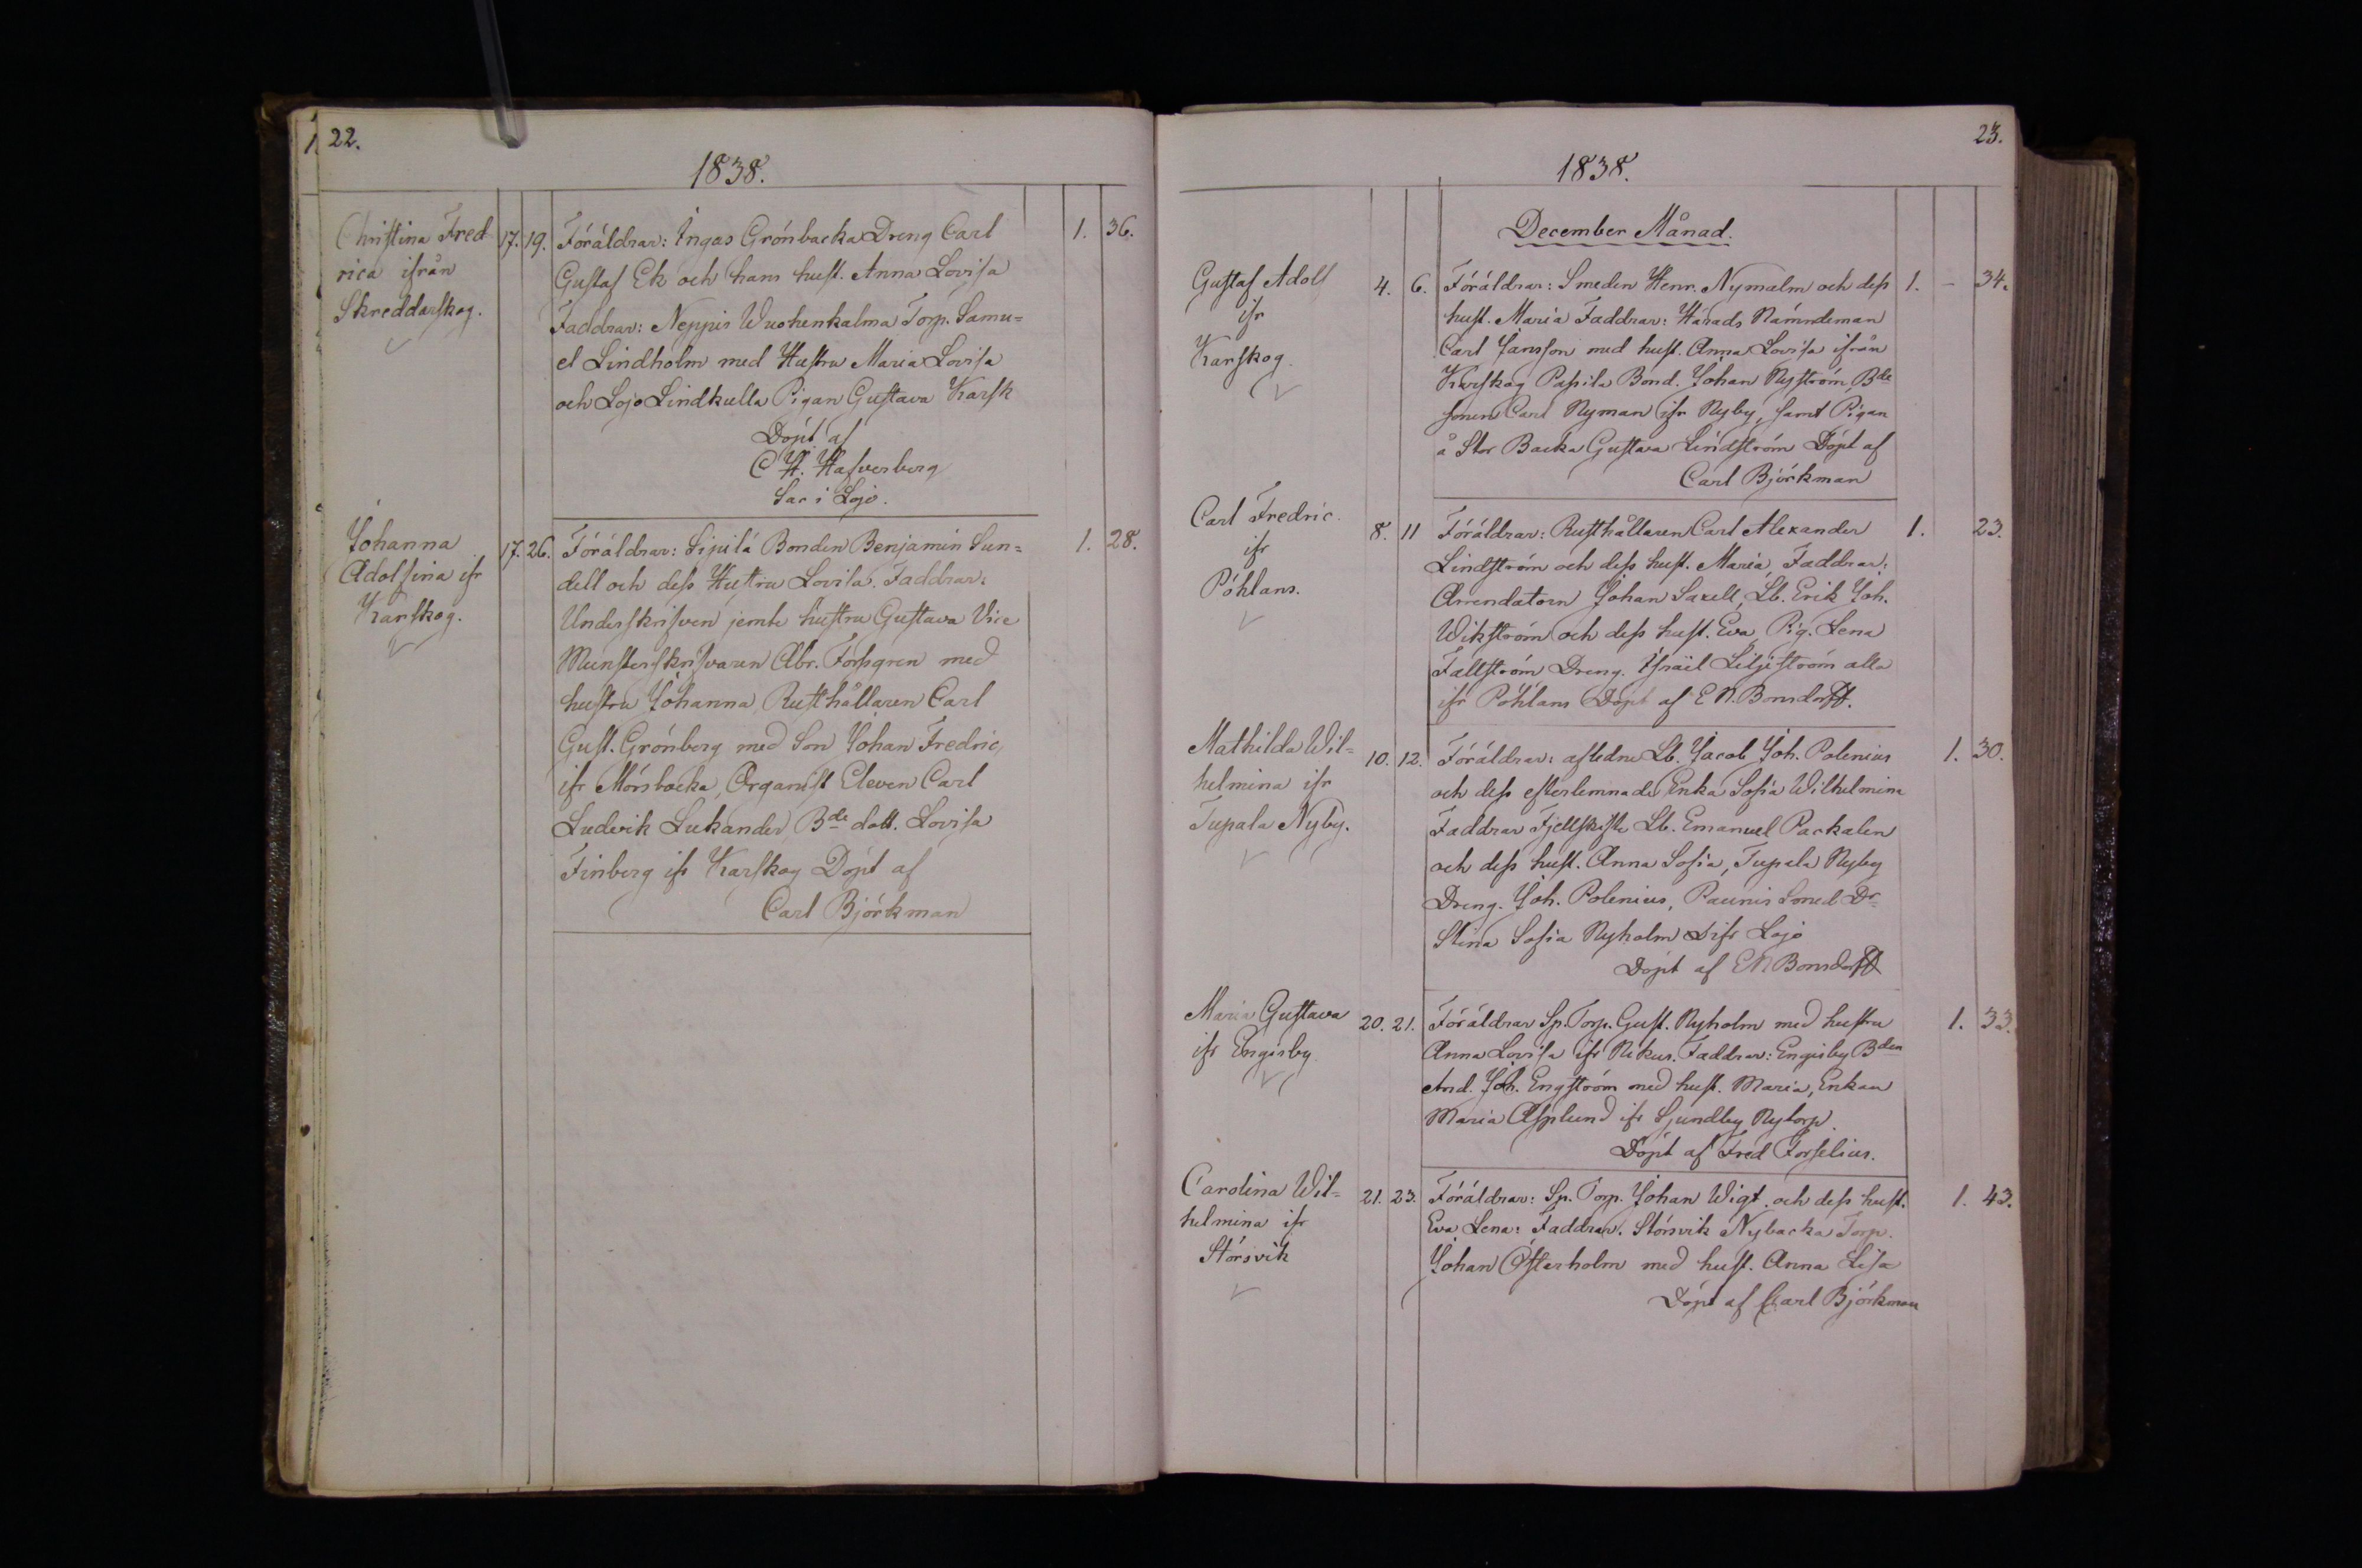 22.
1838.
Christina Fred 17. 19. Föräldrar: Ingas Grönbacka Dreng Carl 1. 36.
rica ifrån Gustaf Ek och hans hust. Anna Lovisa
Skreddarskog. Faddrar: Neppis Wuohenkalma Torp. Samu=
el Lindholm med Hustru Maria Lovisa
och Lojo Lindkulla Pigan Gustava Karsk
Döpt af
C H. Hafverberg
Sac i Lojo.
Johanna 17. 26. Föräldrar: Sipilä Bonden Benjamin Sun= 1. 28.
Adolfina ifr dell och dess Hustru Lovisa. Faddrar:
Karskog. Underskrifven jemte hustru Gustava Vice
Munsterskrifvaren Abr. Forsgren med
hustru Johanna, Rusthållaren Carl
Gust. Grönberg med Son Johan Fredric,
ifr Mörsbacka, Organist Eleven Carl
Ludvik Lukander, Bde dott. Lovisa
Finberg ifr Karskog Döpt af
Carl Björkman
23.
1838.
December Månad.
Gustaf Adolf 4. 6. Föräldrar: Smeden Henr. Nymalm och dess 1. - 34.
ifr hust. Maria Faddrar: Härads Nämndeman
Karskog. Carl Jansson med hust. Anna Lovisa ifrån
Karskog Passila Bond. Johan Nyström, Bde
sonen Carl Nyman ifr Nyby, samt Pigan
å Stor Backa Gustava Lindström Döpt af
Carl Björkman
Carl Fredric. 8. 11 Föräldrar: Rusthållaren Carl Alexander 1. 23.
ifr Lindström och dess hust. Maria, Faddrar:
Pöhlans. Arrendatorn Johan Saxell, Lb. Erik Joh.
Wikström och dess hust. Eva, Pig. Lena
Fällström, Dreng. Israël Liljeström alla
ifr Pöhlans Döpt af E N. Bonsdorff.
Mathilda Wil= 10. 12. Föräldrar: afledne Lb. Jacob Joh. Polenius 1. 30.
helmina ifr och dess efterlemnade Enka Sofia Wilhelmina
Tupala Nyby. Faddrar Fjellskifte Lb. Emanuel Packalen
och dess hust. Anna Sofia, Tupala Nyby
Dreng. Joh. Polenius, Paunis Smed Dr
Stina Sofia Nyholm ifr Lojo
Döpt af E N Bonsdorff
Maria Gustava 20. 21. Föräldrar Sp. Torp. Gust. Nyholm med hustru 1. 33.
ifr Engisby. Anna Lovisa ifr Nikus. Faddrar: Engisby Bden
And. Joh. Engström med hust. Maria, Enkan
Maria Asplund ifr Sjundby Nytorp.
Döpt af Fred Forselius.
Carolina Wil= 21. 23. Föräldrar: Sp. Torp. Johan Wigt. och dess hust. 1. 43.
helmina ifr Eva Lena: Faddrar. Störsvik Nybacka Torp.
Störsvik Johan Österholm med hust. Anna Lisa
Döpt af Carl Björkman